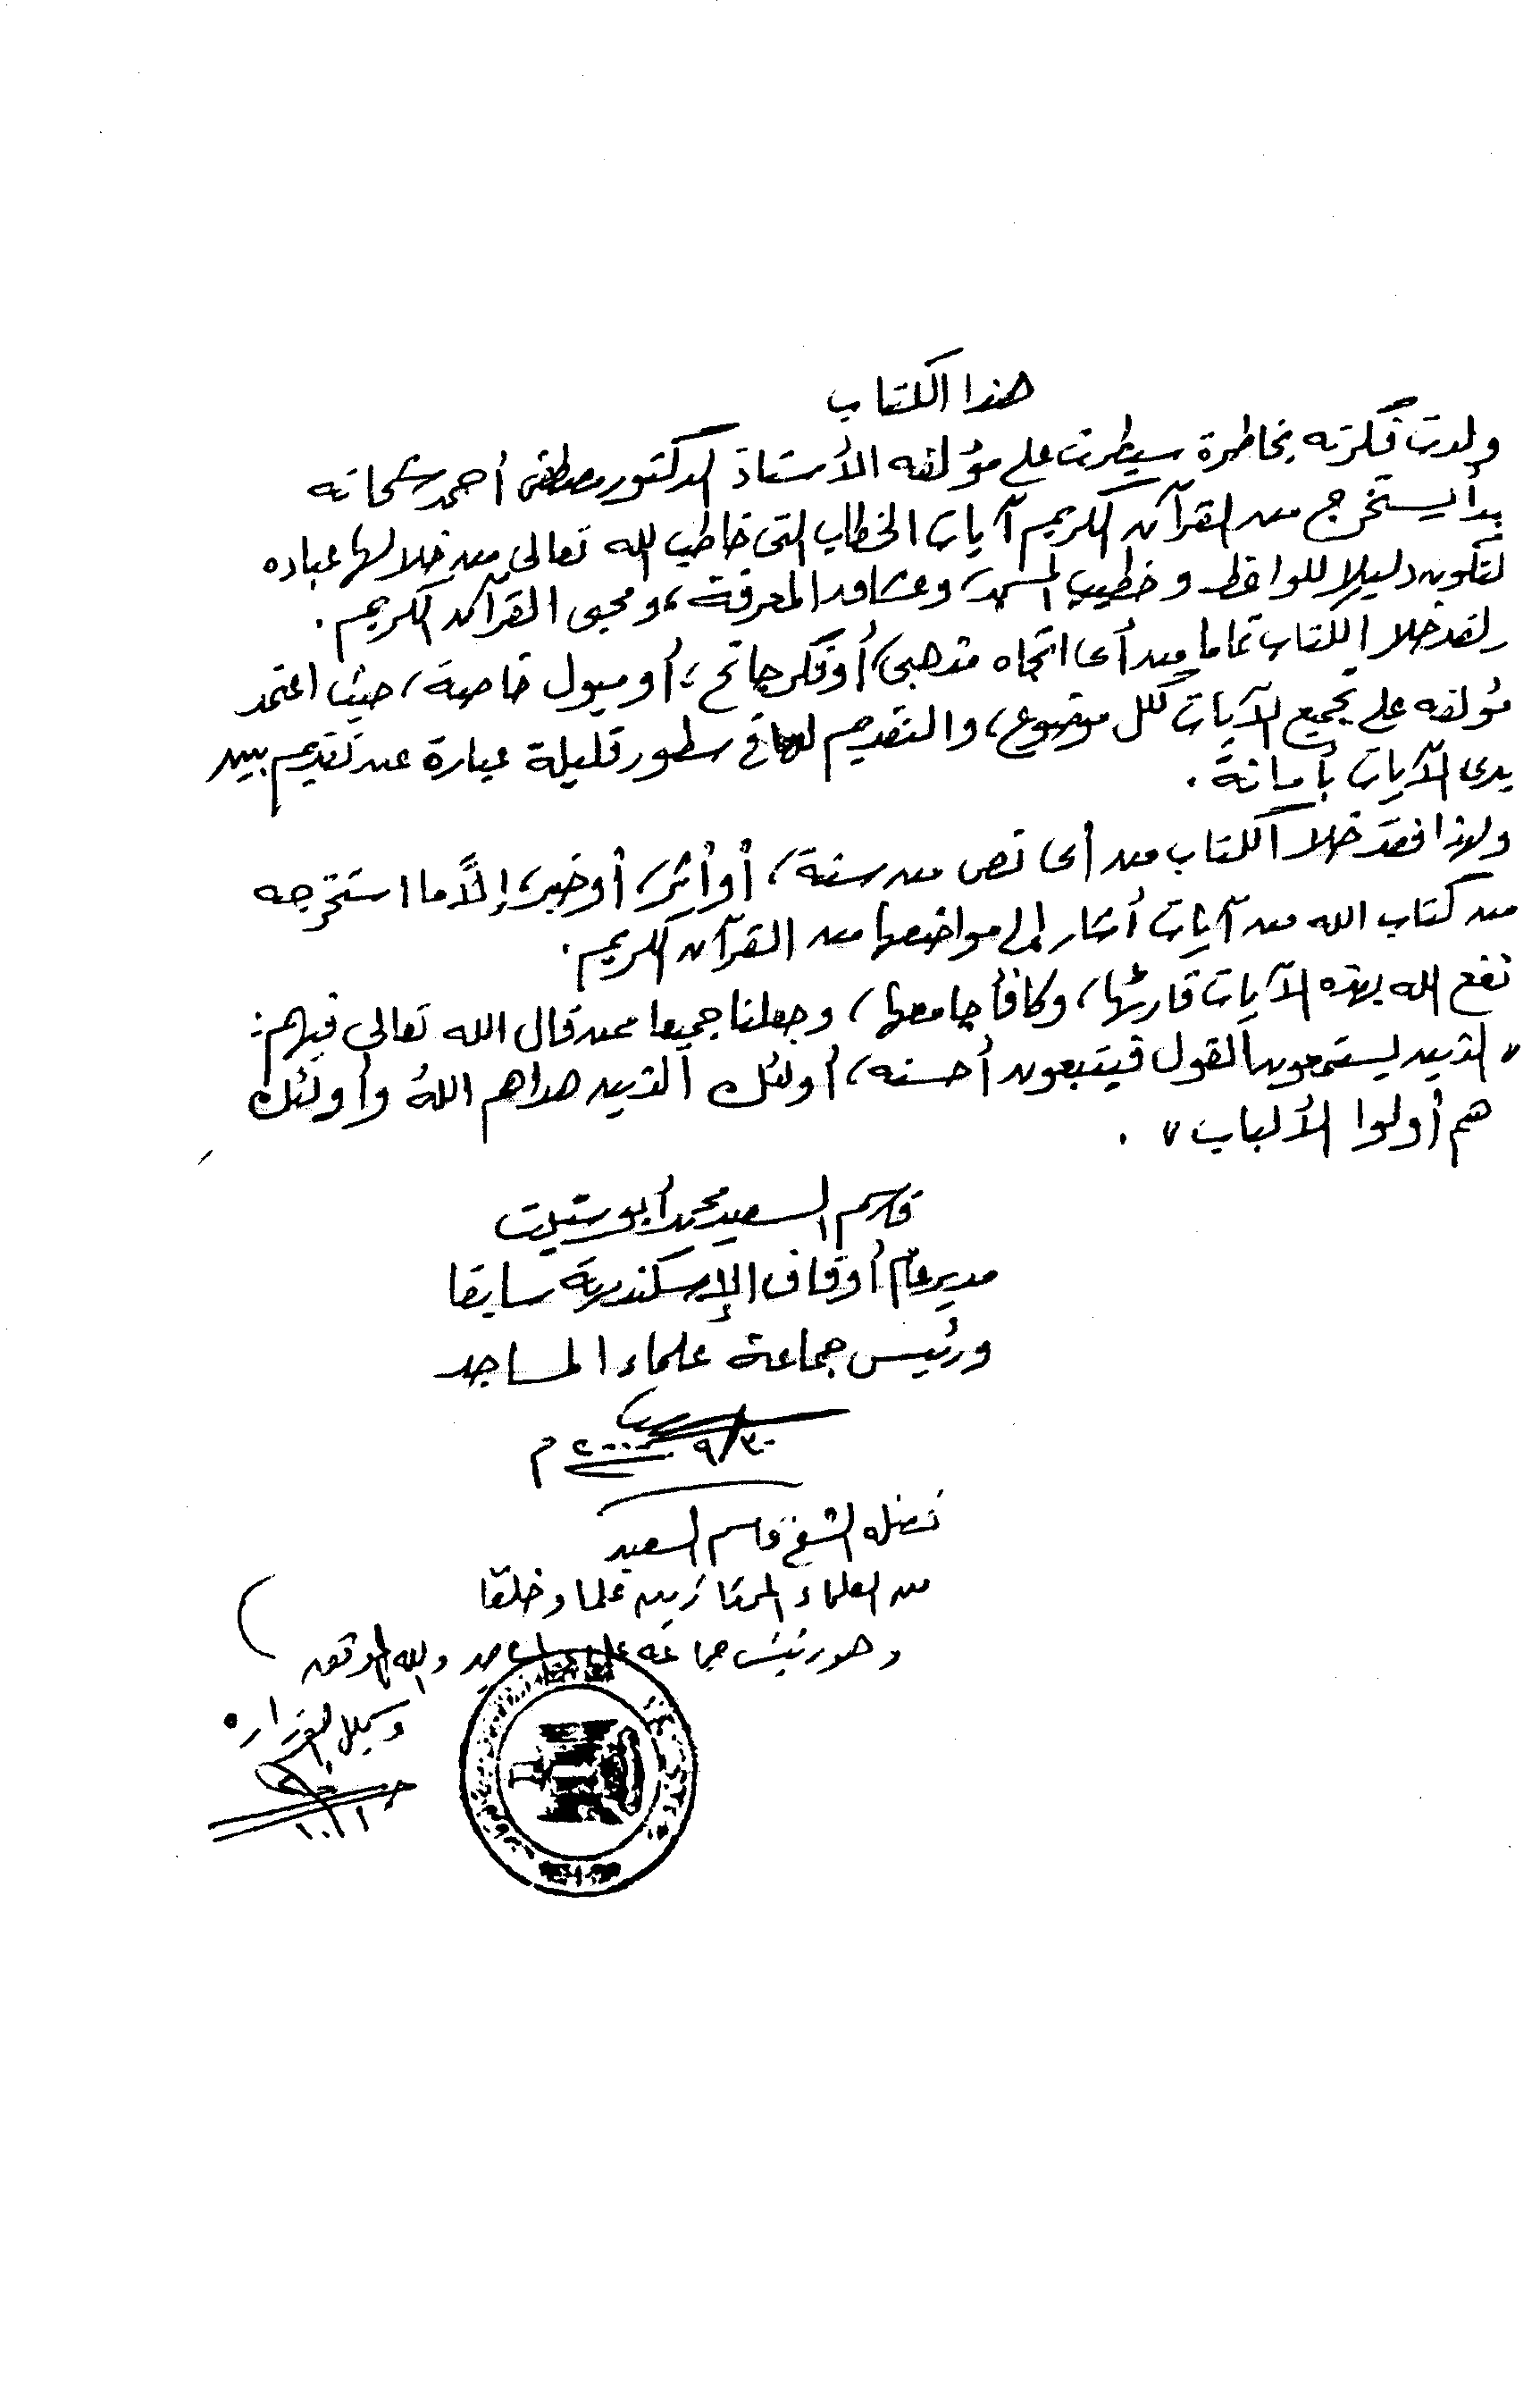 هذا الكتاب
ولدت فكرته بخاطرة سيطرت على مؤلفه الأستاذ الدكتور مصطفى أحمد شحاته
بدأ يستخرج من القرآن الكريم آيات الخطاب التى خاطب الله تعالى من خلالها عباده
لتكون دليلا للواعظ وخطيب المسجد، وعشاق المعرفة، ومحبى القرآن الكريم .
لقد خلا الكتاب تماما من أى اتجاه مذهبى، أو فكر جانح، أو ميول خاصة، حيث اعتمد
مؤلفه على تجميع الآيات لكل موضوع، والتقديم لها فى سطور قليلة عبارة عن تقديم بين
يدى الآيات بأمانة .
ولهذا فقد خلا الكتاب من أى نص من سنة، أو أثر، أو خبر، إلا ما استخرجه
من كتاب الله من آيات أشار إلى مواضعها من القرآن الكريم .
نفع الله بهذه الآيات قارئها، وكافأ جامعها، وجعلنا جميعا ممن قال الله تعالى فيهم :
" الذين يستمعون القول فيتبعون أحسنه، أولئك الذين هداهم اللهُ وأولئك
هم أولوا الألباب " .
قاسم السعيد محمد أبو ستيت
مدير عام أوقاف الإسكندرية سابقا
ورئيس جماعة علماء المساجد
٣٠/٩/٢٠٠٠ م
فضيلة الشيخ قاسم السعيد
من العلماء الممتازين علما وخلقا
وهو رئيس جماعة علماء المساجد والله الموفق
وكيل الوزارة